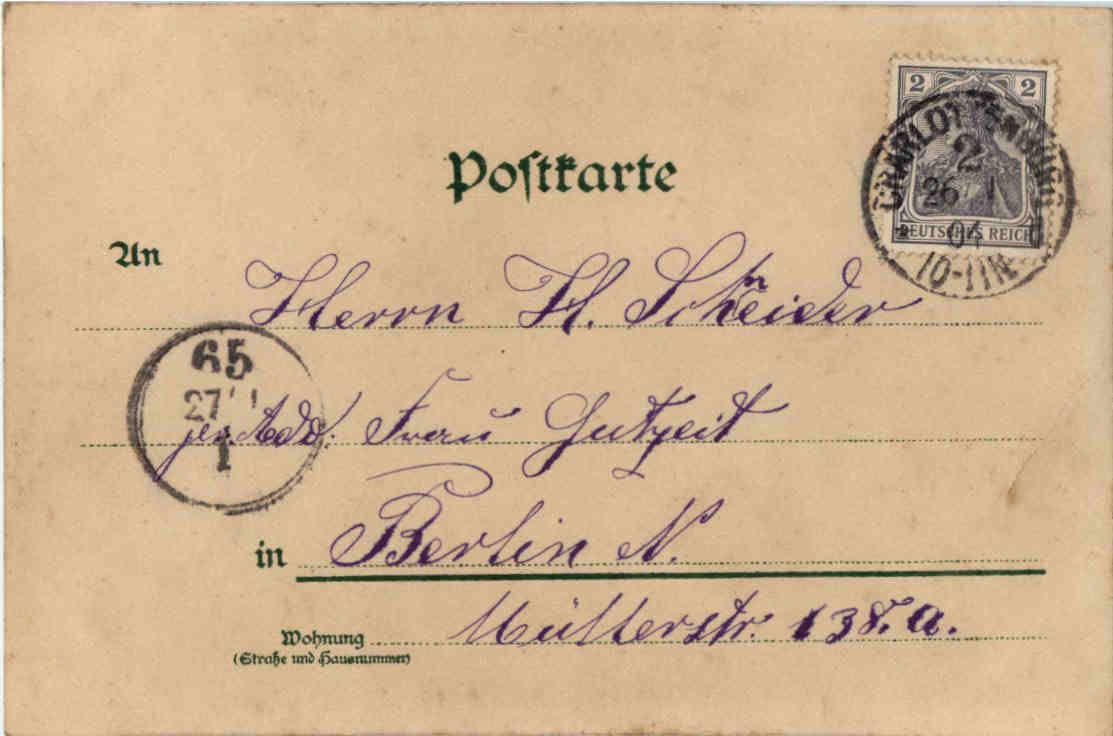 2 2
DEUTSCHES REICH
CHARLOTTENBURG
2
26 1
04
10-11N
Postkarte
An
Herrn H. Schneider
65
27 1
1
per Add. Frau Gutzeit
in Berlin N.
Wohnung Müllerstr. 138. a.
(Straße und Hausnummer)